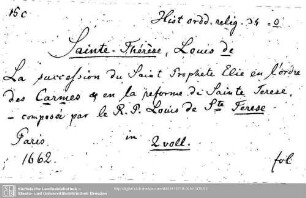 16c
Hist ordd. relig. 34
Sainte-Thérèse, Louis de
La succession du Saint Prophete Elie en l'ordre
des Carmes & en la reforme de Sainte Terese,
– composée par le R. P. Louis de Ste Terese
in 2 voll.
Paris
1662.
fol